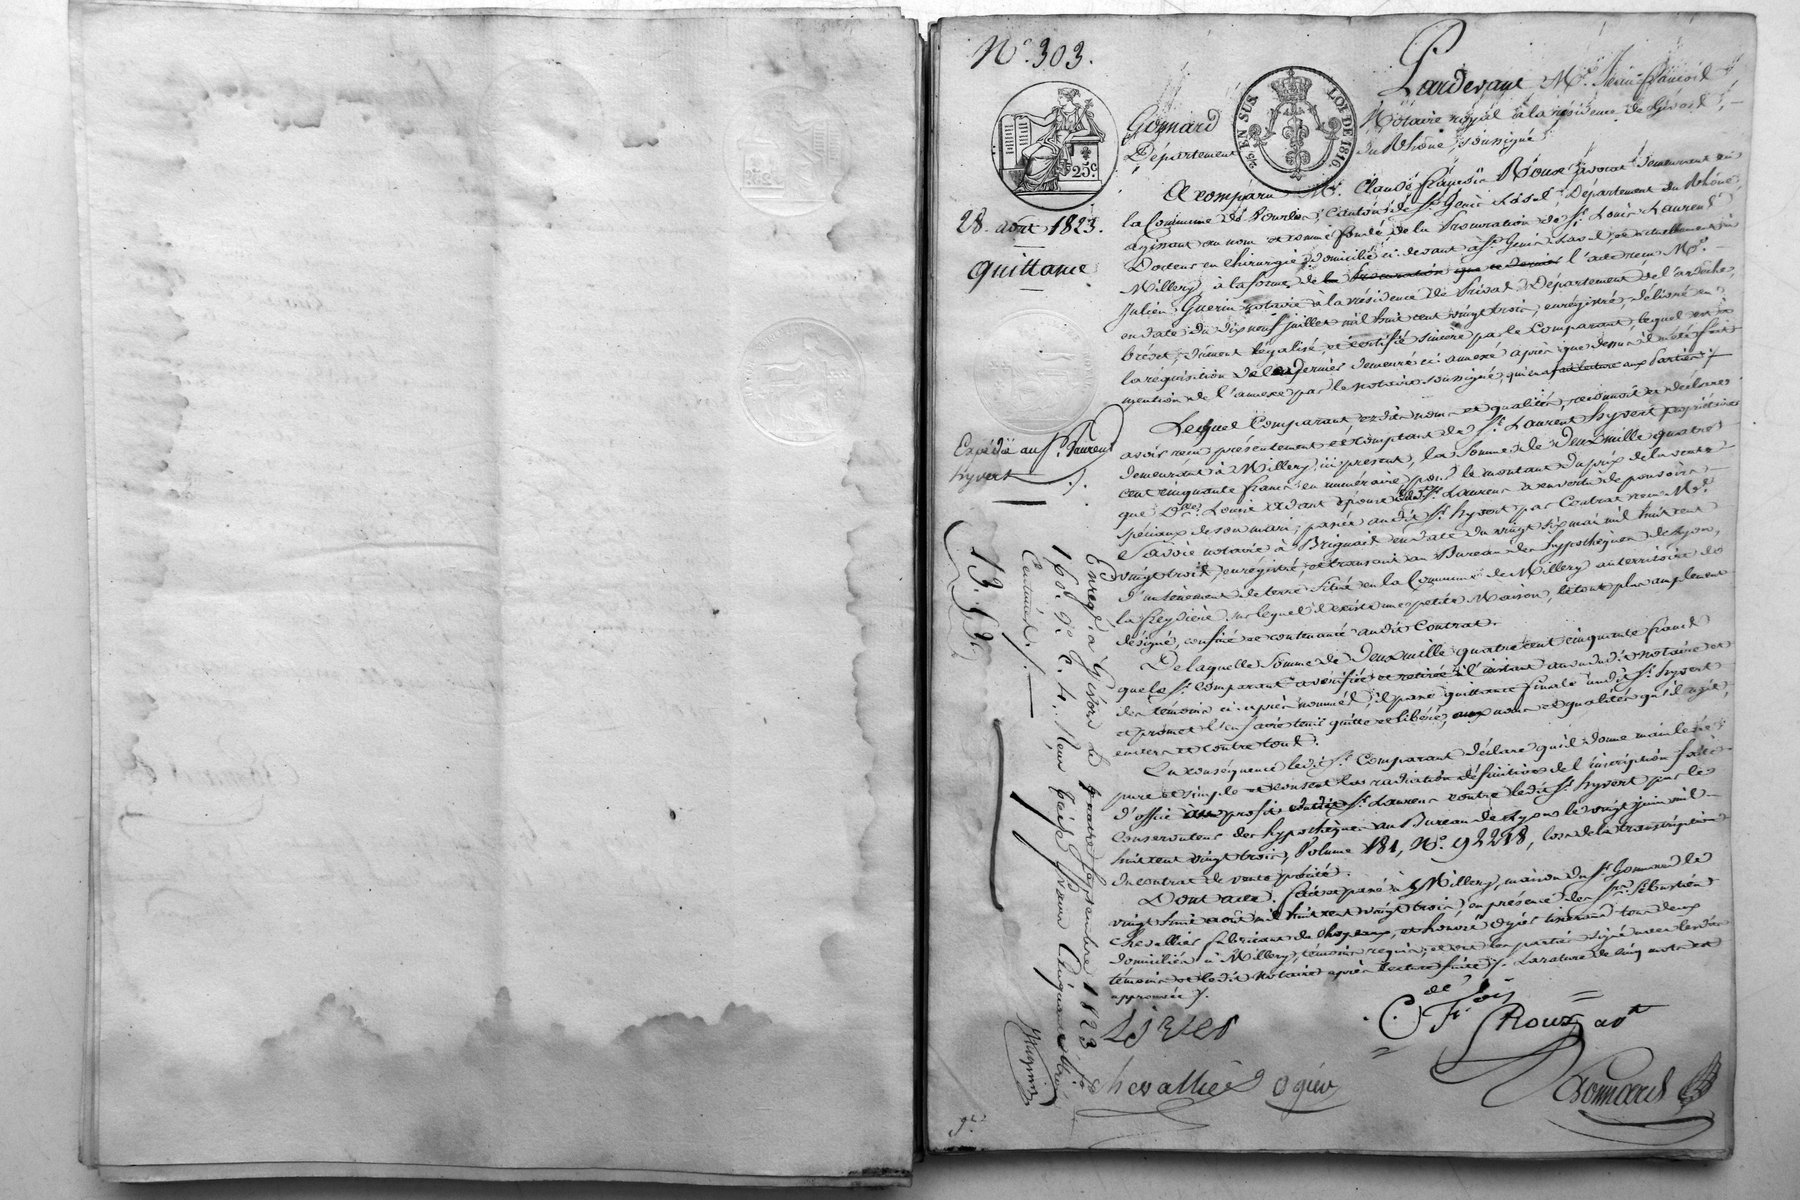 N.° 303.
25c
EN SUS
LOI DE 1816
28. aout 1823.
Quittance
Expédié au Sr. Laurent
hyvert
13.52
Enreg.é à Givors le quatre septembre 1823 fo.
160. vo. c. 4. Reçu treize francs cinquante trois
Centimes./.
Pardevant Me. Jean François
Gonnard Notaire royal à la résidence de Givors,
Département du Rhône, soussigné
A comparu Mr. Claude François Roux avocat demeurant en
la Commune de Vourles, Canton de St. Genis Laval, Département du Rhône,
agissant au nom et comme fondé de la Procuration de Sr. Louis Laurent
Docteur en chirurgie, domicilié ci-devant à St. Genis Laval, et actuellement à
Millery, à la forme de la Procuration que ce dernier l'acte reçu Me.
Julien Guerin notaire à la résidence de Privas Département de l'ardêche,
en date du dix neuf juillet mil huit cent vingt trois, enregistré, délivré en
brevet, dûment légalisé, et certifié sincère par le Comparant, lequel est à
la réquisition de ce dernier demeuré ci annexé après que dessus il a été fait
mention de l'annexe par le notaire soussigné, qui en a fait lecture aux Parties./.
Lequel Comparant, esdits noms et qualités, reconnoit et déclare
avoir reçu présentement et comptant de Sr. Laurent hyvert propriétaire
demeurant à Millery, ici présent, la Somme de deux mille quatre
cent cinquante francs en numéraire, pour le montant du prix de la vente
que De. Louise et dont épouse dudit Sr. Laurent a en vertu de pouvoirs
spéciaux de son mari, passée audit Sr. hyvert par Contrat reçu Me.
notaire à Brignais en date du vingt six mai mil huit cent
vingt trois, enregistré, et transcrit au Bureau des hypothèques de Lyon,
d'un tenement de terre situé en la Commune de Millery au territoire de
la sur lequel il existe une petite Maison, le tout plus amplement
désigné, confiné et contenancé audit Contrat.
De laquelle Somme de Deux mille quatre cent cinquante francs
que le Sr. Comparant a vérifiée et retirée à l'instant au vu dudit notaire et
des témoins ci-après nommés, il passe quittance finale audit Sr. hyvert
et promet l'en faire tenir quitte et libéré, aux noms et qualités qu'il agit,
envers et contre tous.
En conséquence ledit Sr. Comparant déclare qu'il donne mainlevée
pure et simple et consent la radiation définitive de l'inscription faite
d'office au profit dudit Sr. Laurent contre ledit Sr. hyvert par le
Conservateur des hypothèques au Bureau de Lyon le vingt juin mil
huit cent vingt trois, Volume 181, N.° 92218, lors de la transcription
du contrat de vente précité.
Dont acte. fait et passé à Millery, maison du Sr. Gonnard le
vingt huit août mil huit cent vingt trois, en présence des Srs. Sébastien
Chevallier fabricant de chapeaux, et honoré ogier tisserand tous deux
domiciliés à Millery, témoins requis, et ont les parties signé avec lesdits
témoins et ledit Notaire après lecture faite./. La rature de cinq mots est
approuvée./.
C. de Fois Roux avt
chevallier ogier
Gonnard